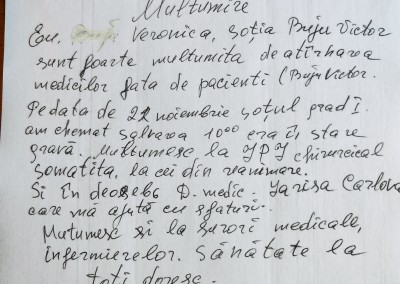 Multumire
Eu, Veronica, soția Buju Victor
sunt foarte multumita de atîrnarea
medicilor fata de pacienti (Buju Victor.
Pe data de 22 noiembrie soțul grad I.
am chemat salvarea 10⁰⁰ era în stare
gravă. Multumesc la chirurcical
Somatita, la cei din reanimare.
Si în deoseb D. medic. Larisa Carlova
care mă ajută cu sfaturi.
Mutumesc și la surori medicale,
infermierelor. Sănătate la
toti doresc.